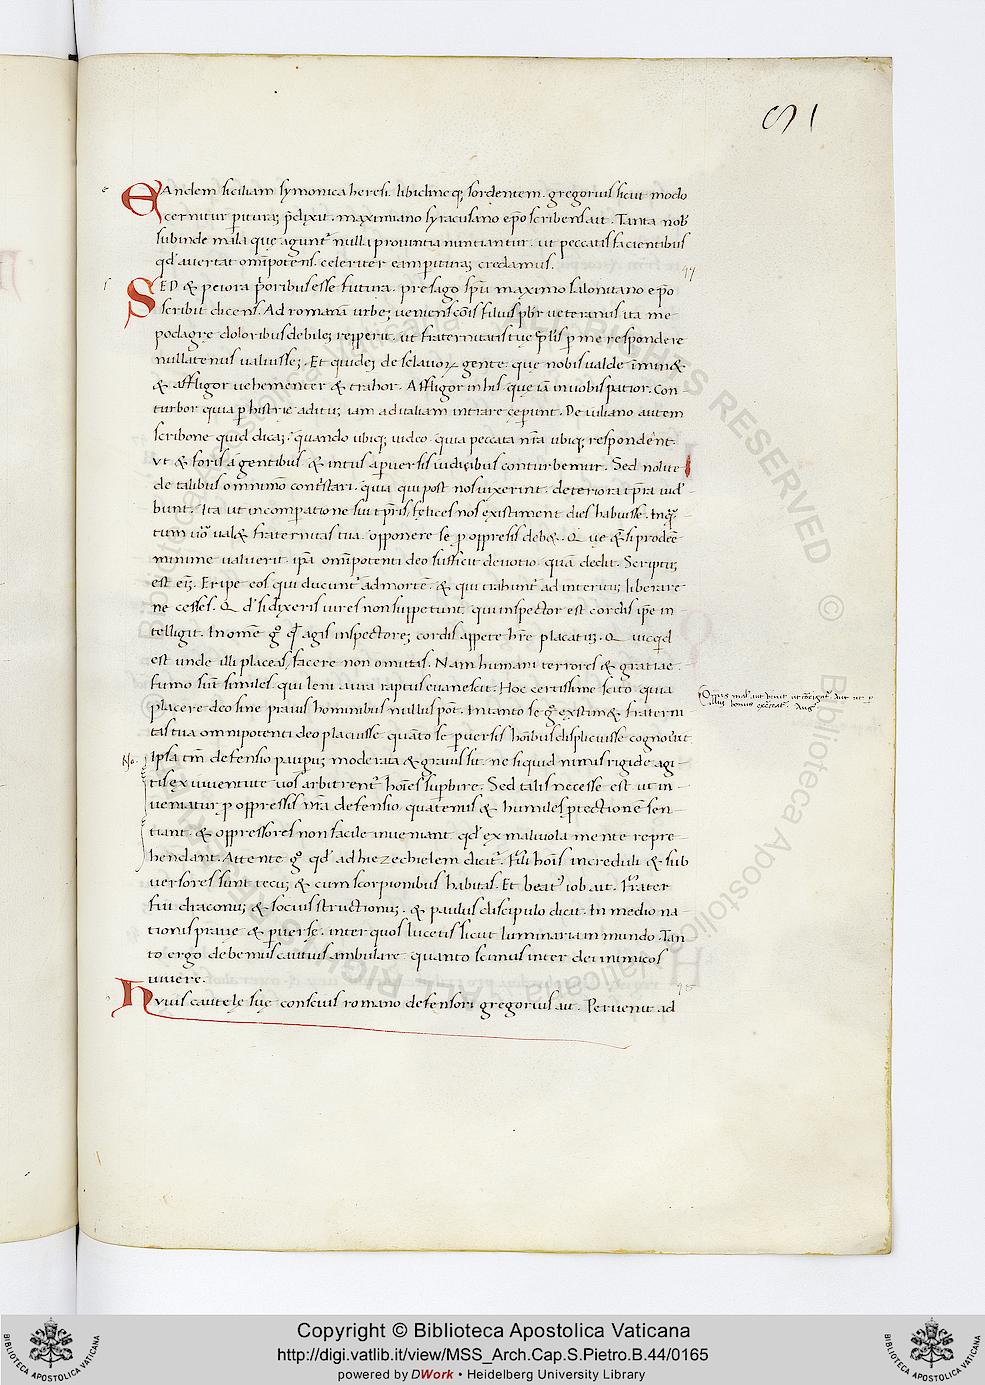 91
EAndem siciliam symonica heresi. libidineq; sordentem. gregorius sicut modo
cernitur peritura; p̄dixit. maximiano syracusano ep̄o scribens ait. Tanta nob̄
subinde mala que agunt᷑ in illa prouincia nuntiantur. ut peccatis facientibus
qđ auertat om̄ipotens. celeriter eam peritura; credamus.
97
SED & peiora p̄oribus esse futura. presago sp̄u maximo salonitano ep̄o
scribit dicens. Ad romanā urbe; ueniens cōis filius pb̄r ueteranus ita me
podagre doloribus debile; repperit. ut fraternitatis tuę ep̄lis p me respondere
nullatenus ualuisse;. Et quide; de sclauoꝝ gente. que nobis ualde īmin&
& affligor uehementer & trahor. Affligor in his. que iā in uobis patior. Con
turbor quia p histrie aditu; iam ad italiam intrare cęperunt. De iuliano autem
scribone quid dica;. quando ubiq; uideo. quia peccata n̄ra ubiq; respondent.
Vt & foris a gentibus & intus a peruersis iudicibus conturbemur. Sed nolite
de talibus omnimo cont̄stari. quia qui post nos uixerint. deteriora tp̄ra uid̄
bunt. Ita ut in comparatione sui tp̄ris felices nos existiment dies habuisse. Inq̄
tum uō ual& fraternitas tua. opponere se p oppressis deb&. Quę &si prodeē
minime ualuerit. ip̄a om̄ipotenti deo sufficit deuotio quā dedit. Scriptu;
est ei;. Eripe eos qui ducunt᷑ ad mortē. & qui trahunt᷑ ad interitu; liberare
ne cesses. Qđ si dixeris uires non suppetunt. qui inspector est cordis ip̄e in
telligit. In om̄e g° qđ agis inspectore; cordis appete hr̄e placatu;. Quicqđ
est unde illi placeas. facere non omittas. Nam humani terrores & gratiae.
fumo sūt similes. qui leni aura raptus euanescit. Hoc certissime scito. quia
placere deo sine prauis hominibus nullus pōt. In tanto se g° existim& fraterni
tas tua omnipotenti deo placuisse. quāto se peruersis hōibus displicuisse cognouit.
Ipsa tm̄ defensio paupu; moderata & grauis sit. ne si quid nimis rigide agi
tis. ex iuuentute uos arbitrent᷑ hoīes supbire. Sed talis necesse est ut in
ueniatur p oppressis n̄ra defensio. quatenus & humiles p̄tectionē sen
tiant. & oppressores non facile inueniant qđ ex maliuola mente repre
hendant. Attente g° qđ ad hiezechielem dicit᷑. Fili hois increduli & sub
uersores sunt tecu;. & cum scorpionibus habitas. Et beat᷑ iob ait. Frater
fui draconu; & socius structionu;. & paulus discipulo dicit. In medio na
tionis praue & peruersę. inter quos lucetis sicut luminaria in mundo. Tan
to ergo debemus cautius ambulare quanto scimus inter dei inimicos
uiuere.
98
HVius cautelę suę conscius romano defensori gregorius ait. Peruenit ad
Copyright © Biblioteca Apostolica Vaticana
http://digi.vatlib.it/view/MSS_Arch.Cap.S.Pietro.B.44/0165
powered by DWork • Heidelberg University Library